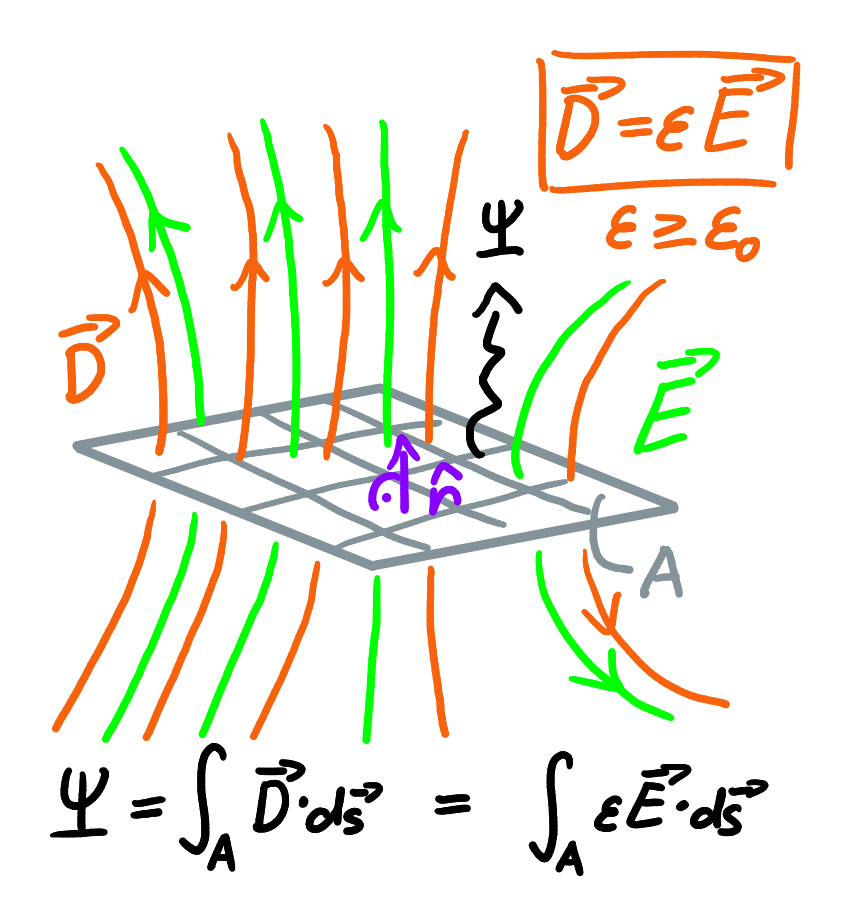 D⃗ = ε E⃗
ε ≥ ε₀
Ψ
D⃗
E⃗
n̂
A
Ψ = ∫_A D⃗ · ds⃗ = ∫_A ε E⃗ · ds⃗